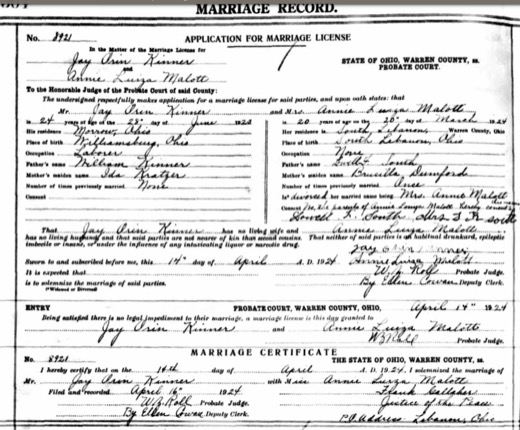 MARRIAGE RECORD.
No. 8921 APPLICATION FOR MARRIAGE LICENSE
In the Matter of the Marriage License for
Jay Orin Kinner
and
Annie Luiza Malott
STATE OF OHIO, WARREN COUNTY, ss.
PROBATE COURT.
To the Honorable Judge of the Probate Court of said County:
The undersigned respectfully makes application for a marriage license for said parties, and upon oath states: that
Mr. Jay Orin Kinner
is 24 years of age of the 28" day of June 1923
His residence is Morrow, Ohio
Place of birth is Williamsburg, Ohio
Occupation Laborer
Father's name William Kinner
Mother's maiden name Ida Kratzer
Number of times previously married None
Consent
and Mrs. Annie Luiza Malott
is 20 years of age of the 20" day of March 1924
Her residence is South Lebanon, Warren County, Ohio
Place of birth is South Lebanon, Ohio
Occupation None
Father's name South
Mother's maiden name Drucilla Dumford
Number of times previously married Once
is divorced & her married name being Mrs. Annie Malott
Consent parents of Annie Malott hereby consent
Howell F. South Mrs
That Jay Orin Kinner has no living wife and Annie Luiza Malott
has no living husband and that said parties are not nearer of kin than second cousins. That neither of said parties is an habitual drunkard, epileptic
imbecile or insane, or under the influence of any intoxicating liquor or narcotic drug.
Jay Orin Kinner
Annie Luiza Malott
Sworn to and subscribed before me, this 14" day of April A. D. 1924
W. Z. Roll Probate Judge.
It is expected that
By Ellen Cowan Deputy Clerk.
is to solemnize the marriage of said parties.
ENTRY PROBATE COURT, WARREN COUNTY, OHIO, April 14" 1924
Being satisfied there is no legal impediment to their marriage, a marriage license is this day granted to
Jay Orin Kinner and Annie Luiza Malott
W Z Roll Probate Judge.
MARRIAGE CERTIFICATE
No. 8921 THE STATE OF OHIO, WARREN COUNTY, ss.
I hereby certify that on the 14th day of April A. D. 1924, I solemnized the marriage of
Mr. Jay Oren Kinner with Miss Annie Luiza Malott
Filed and recorded April 16" 1924
Frank Gallaher
W. Z. Roll Probate Judge.
Justice of the Peace
By Ellen Cowan Deputy Clerk.
P.O. Address Lebanon, Ohio